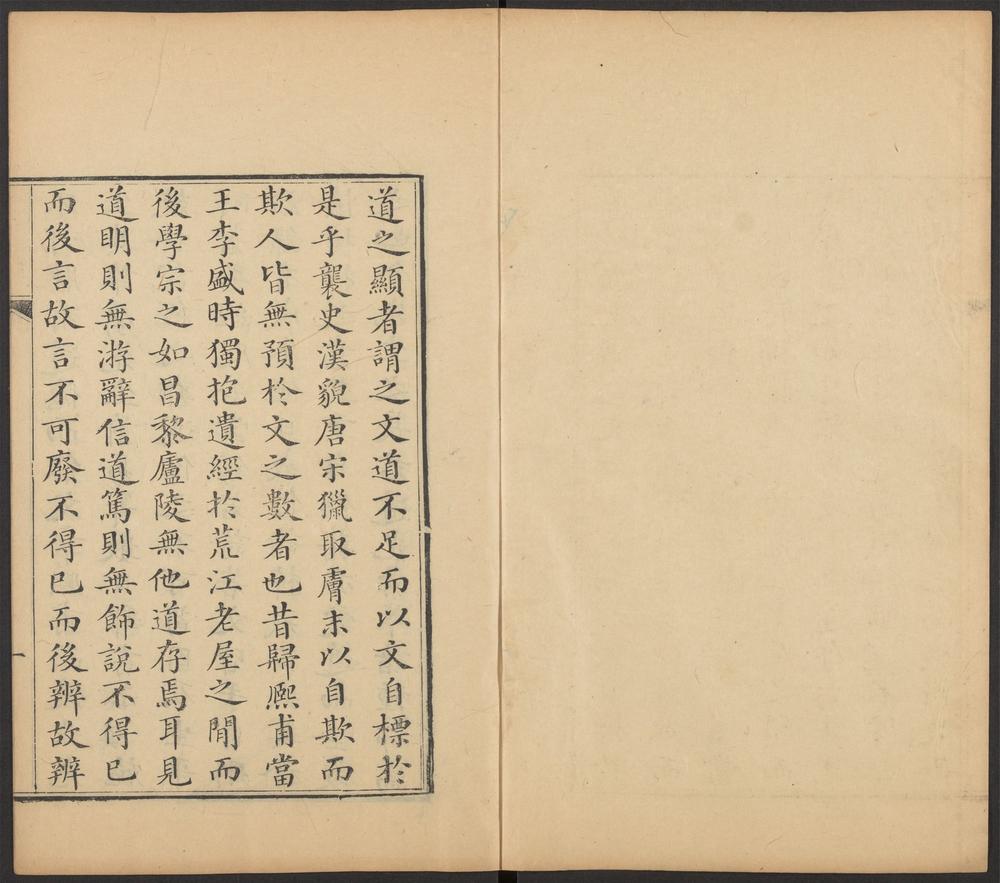 道之顯者謂之文道不足而以文自標於
是乎襲史漢貌唐宋獵取膚末以自欺而
欺人皆無預於文之數者也昔歸熙甫當
王李盛時獨抱遺經於荒江老屋之間而
後學宗之如昌黎廬陵無他道存焉耳見
道明則無游辭信道篤則無飾說不得已
而後言故言不可廢不得已而後辨故辨
一